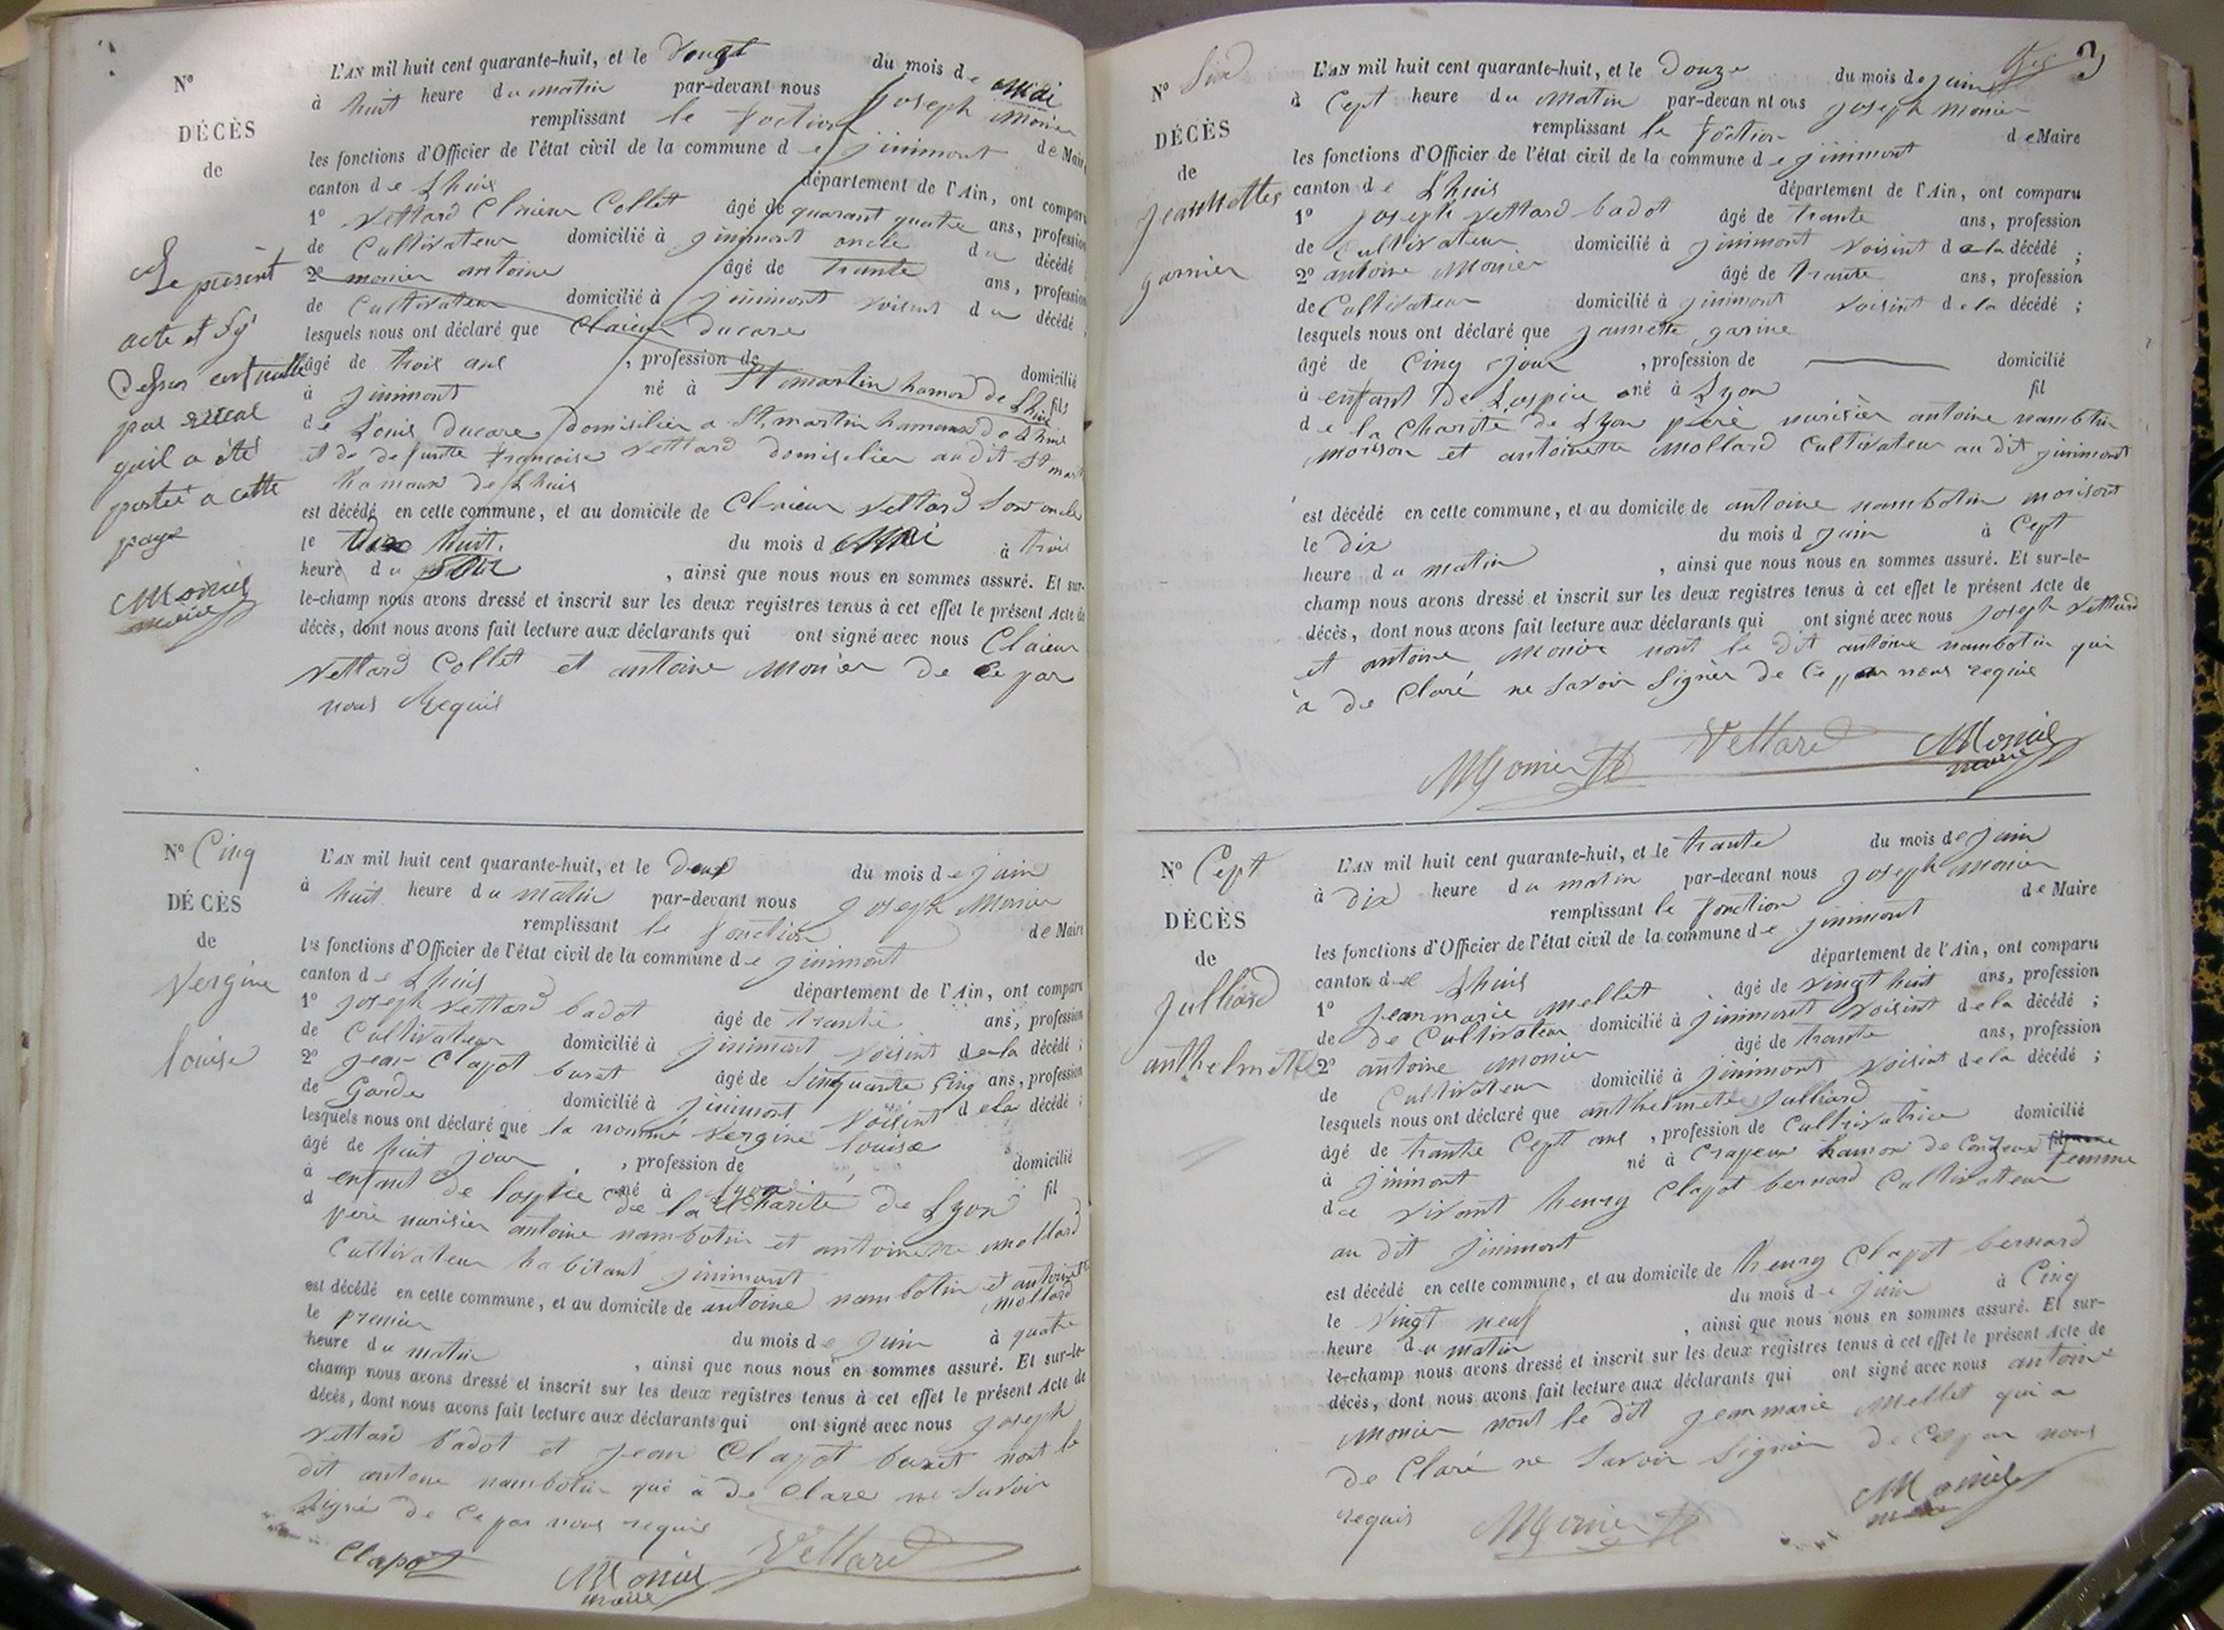 N°
DÉCÈS
de
Le présent
acte et sy
Dessus est nulle
par
quil a été
portée a cette
page
Monier
maire
L'AN mil huit cent quarante-huit, et le du mois de Mai
à huit heure du matin par-devant nous Joseph Monier
remplissant le foction de Maire
les fonctions d'Officier de l'état civil de la commune de jinimont
canton de Lhuis département de l'Ain, ont comparu
1° Vettard Collet âgé de quarant quatre ans, profession
de Cultivateur domicilié à jinimont oncle du décédé
2° monier antoine âgé de trante ans, profession
de Cultivateur domicilié à jinimont voisint du décédé
lesquels nous ont déclaré que Claieur ducare
âgé de trois ans , profession de domicilié
à jinimont né à St martin hamon de Lhuis fils
de Louis ducare domisilier a St martin hamaux de Lhuis
et de defuntte françoise Vettard domisilier audit St mart
hamaux de Lhuis
est décédé en cette commune, et au domicile de Vettard son oncle
le huit du mois d Mai à trois
heure du , ainsi que nous nous en sommes assuré. Et sur-
le-champ nous avons dressé et inscrit sur les deux registres tenus à cet effet le présent Acte de
décès, dont nous avons fait lecture aux déclarants qui ont signé avec nous Claieur
Vettard Collet et antoine Monier de ce par
nous Requis
N° Cinq
DÉCÈS
de
Vergine
louise
L'AN mil huit cent quarante-huit, et le deux du mois de juin
à huit heure du matin par-devant nous joseph Monier
remplissant le fonction de Maire
les fonctions d'Officier de l'état civil de la commune de jinimont
canton de Lhuis département de l'Ain, ont comparu
1° joseph Vettard badot âgé de trante ans, profession
de Cultivateur domicilié à jinimont voisint de la décédé ;
2° jean Clapot buret âgé de Sinquante Cinq ans, profession
de Garde domicilié à jinimont voisint de la décédé ;
lesquels nous ont déclaré que la nommé Vergine louise
âgé de huit jour , profession de domicilié
à enfant de lospice né à Lyon fil
d de la Charité de Lyon
père nurisier antoine nambotin et antoinette mollard
Cultivateur habitant jinimont
est décédé en cette commune, et au domicile de antoine nambotin et antoinette
mollard
le premier du mois de juin à quatre
heure du matin , ainsi que nous nous en sommes assuré. Et sur-le-
champ nous avons dressé et inscrit sur les deux registres tenus à cet effet le présent Acte de
décès, dont nous avons fait lecture aux déclarants qui ont signé avec nous joseph
Vettard badot et jean Clapot buret nont le
dit antone nambotin qui à de Clare ne Savoir
Signé de Ce par nous requis
Clapot
Monier
maire
Vettard
3
N° Six
DÉCÈS
de
jeannettes
garnier
L'AN mil huit cent quarante-huit, et le douze du mois de juin
à Cept heure du Matin par-devan nt ous joseph Monier
remplissant le foction de Maire
les fonctions d'Officier de l'état civil de la commune de jinimont
canton de Lhuis département de l'Ain, ont comparu
1° joseph Vettard badot âgé de trante ans, profession
de Cultivateur domicilié à jinimont voisint de la décédé ;
2° antoine Monier âgé de trante ans, profession
de Cultivateur domicilié à jinimont voisint de la décédé ;
lesquels nous ont déclaré que jannette garine
âgé de Cinq jour , profession de domicilié
à enfant de Lospice né à Lyon fil
de la Charité de Lyon père nurisièr antoine nambotin
morison et antoinette Mollard Cultivateur au dit jinimont
est décédé en cette commune, et au domicile de antoine nambotin morisont
le dix du mois d juin à Cept
heure du matin , ainsi que nous nous en sommes assuré. Et sur-le-
champ nous avons dressé et inscrit sur les deux registres tenus à cet effet le présent Acte de
décès, dont nous avons fait lecture aux déclarants qui ont signé avec nous joseph Vettard
et antoine Monier nont le dit antoine nambotin qui
à de Claré ne Savoir Signèr de Ce par nous requis
Monier
Vettard
Monier
maire
N° Cept
DÉCÈS
de
Julliard
anthelmette
L'AN mil huit cent quarante-huit, et le trante du mois de juin
à Dix heure du matin par-devant nous joseph Monier
remplissant le fonction de Maire
les fonctions d'Officier de l'état civil de la commune de jinimont
canton de Lhuis département de l'Ain, ont comparu
1° jeanmarie Mellet âgé de vingt huit ans, profession
de de Cultivateur domicilié à jinimont voisint de la décédé ;
2° antoine Monier âgé de trante ans, profession
de Cultivateur domicilié à jinimont voisint de la décédé ;
lesquels nous ont déclaré que anthelmette Julliard
âgé de trante Cept ans , profession de Cultivatrice domicilié
à jinimont né à Crapeur hamon de femme
de vivant henry Clapot bernard Cultivateur
au dit jinimont
est décédé en cette commune, et au domicile de henry Clapot bernard
le vingt neuf du mois de juin à Cinq
heure du matin , ainsi que nous nous en sommes assuré. Et sur-
le-champ nous avons dressé et inscrit sur les deux registres tenus à cet effet le présent Acte de
décès, dont nous avons fait lecture aux déclarants qui ont signé avec nous antoine
Monier nont le dit jeanmarie Mellet qui a
de Claré ne Savoir Signier de Ce par nous
requis
Monier
Monier
maire